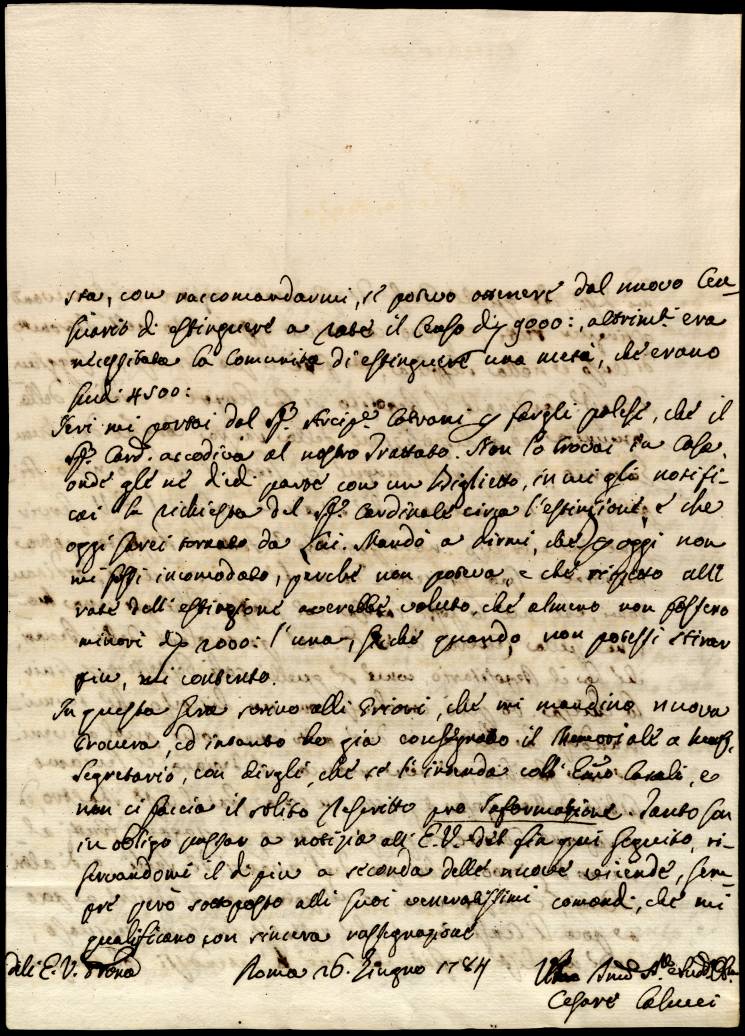 sta, con raccomandarmi, se potevo ottenere dal nuovo Cen-
suario di estinguere a rate il Censo di 9000:, altrimti. era
necessitata la Comunità di estinguere una metà, che erano
scudi 4500:
Ieri mi portai dal Sigr. Arcipe. Catrani p fargli palese, che il
Sigr. Card. accodiva al nostro Trattato. Non lo trovai in Casa,
onde gle ne diedi parte con un Biglietto, in cui gli notifi-
cai la richiesta del Sigr. Cardinale circa l'estinzione, e che
oggi sarei tornato da Lui. Mandò a dirmi, che p oggi non
mi fossi incomodato, perchè non poteva, e che rispetto alle
rate dell'estinzione averebbe voluto, che almeno non fossero
minori di 2000: l'una, sicchè quando non potessi stirar
più, mi contento.
In questa sera scrivo alli Priori, che mi mandino nuova
Procura, ed intanto ho già consegnato il Memoriale a
Segretario, con dirgli, che se l'intenda coll'Emo Casali, e
non ci faccia il solito Rescritto pro Informatione. Tanto son
in obligo passar a notizia all'E.V. del fin qui seguito, ri-
servandomi il di più a seconda delle nuove vicende, sem-
pre però sottoposto alli suoi veneratissimi comandi, che mi
qualificano con sincera rassegnazione
dell'E.V. Prona
Roma 26. Giugno 1784
Cesare Calucci